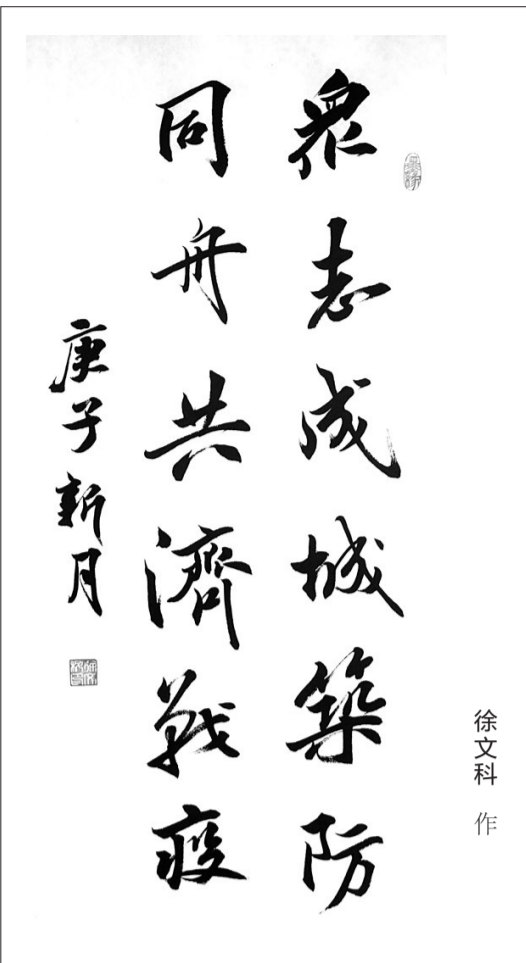 眾志成城築防
同舟共濟戰疫
庚子新月
徐文科 作